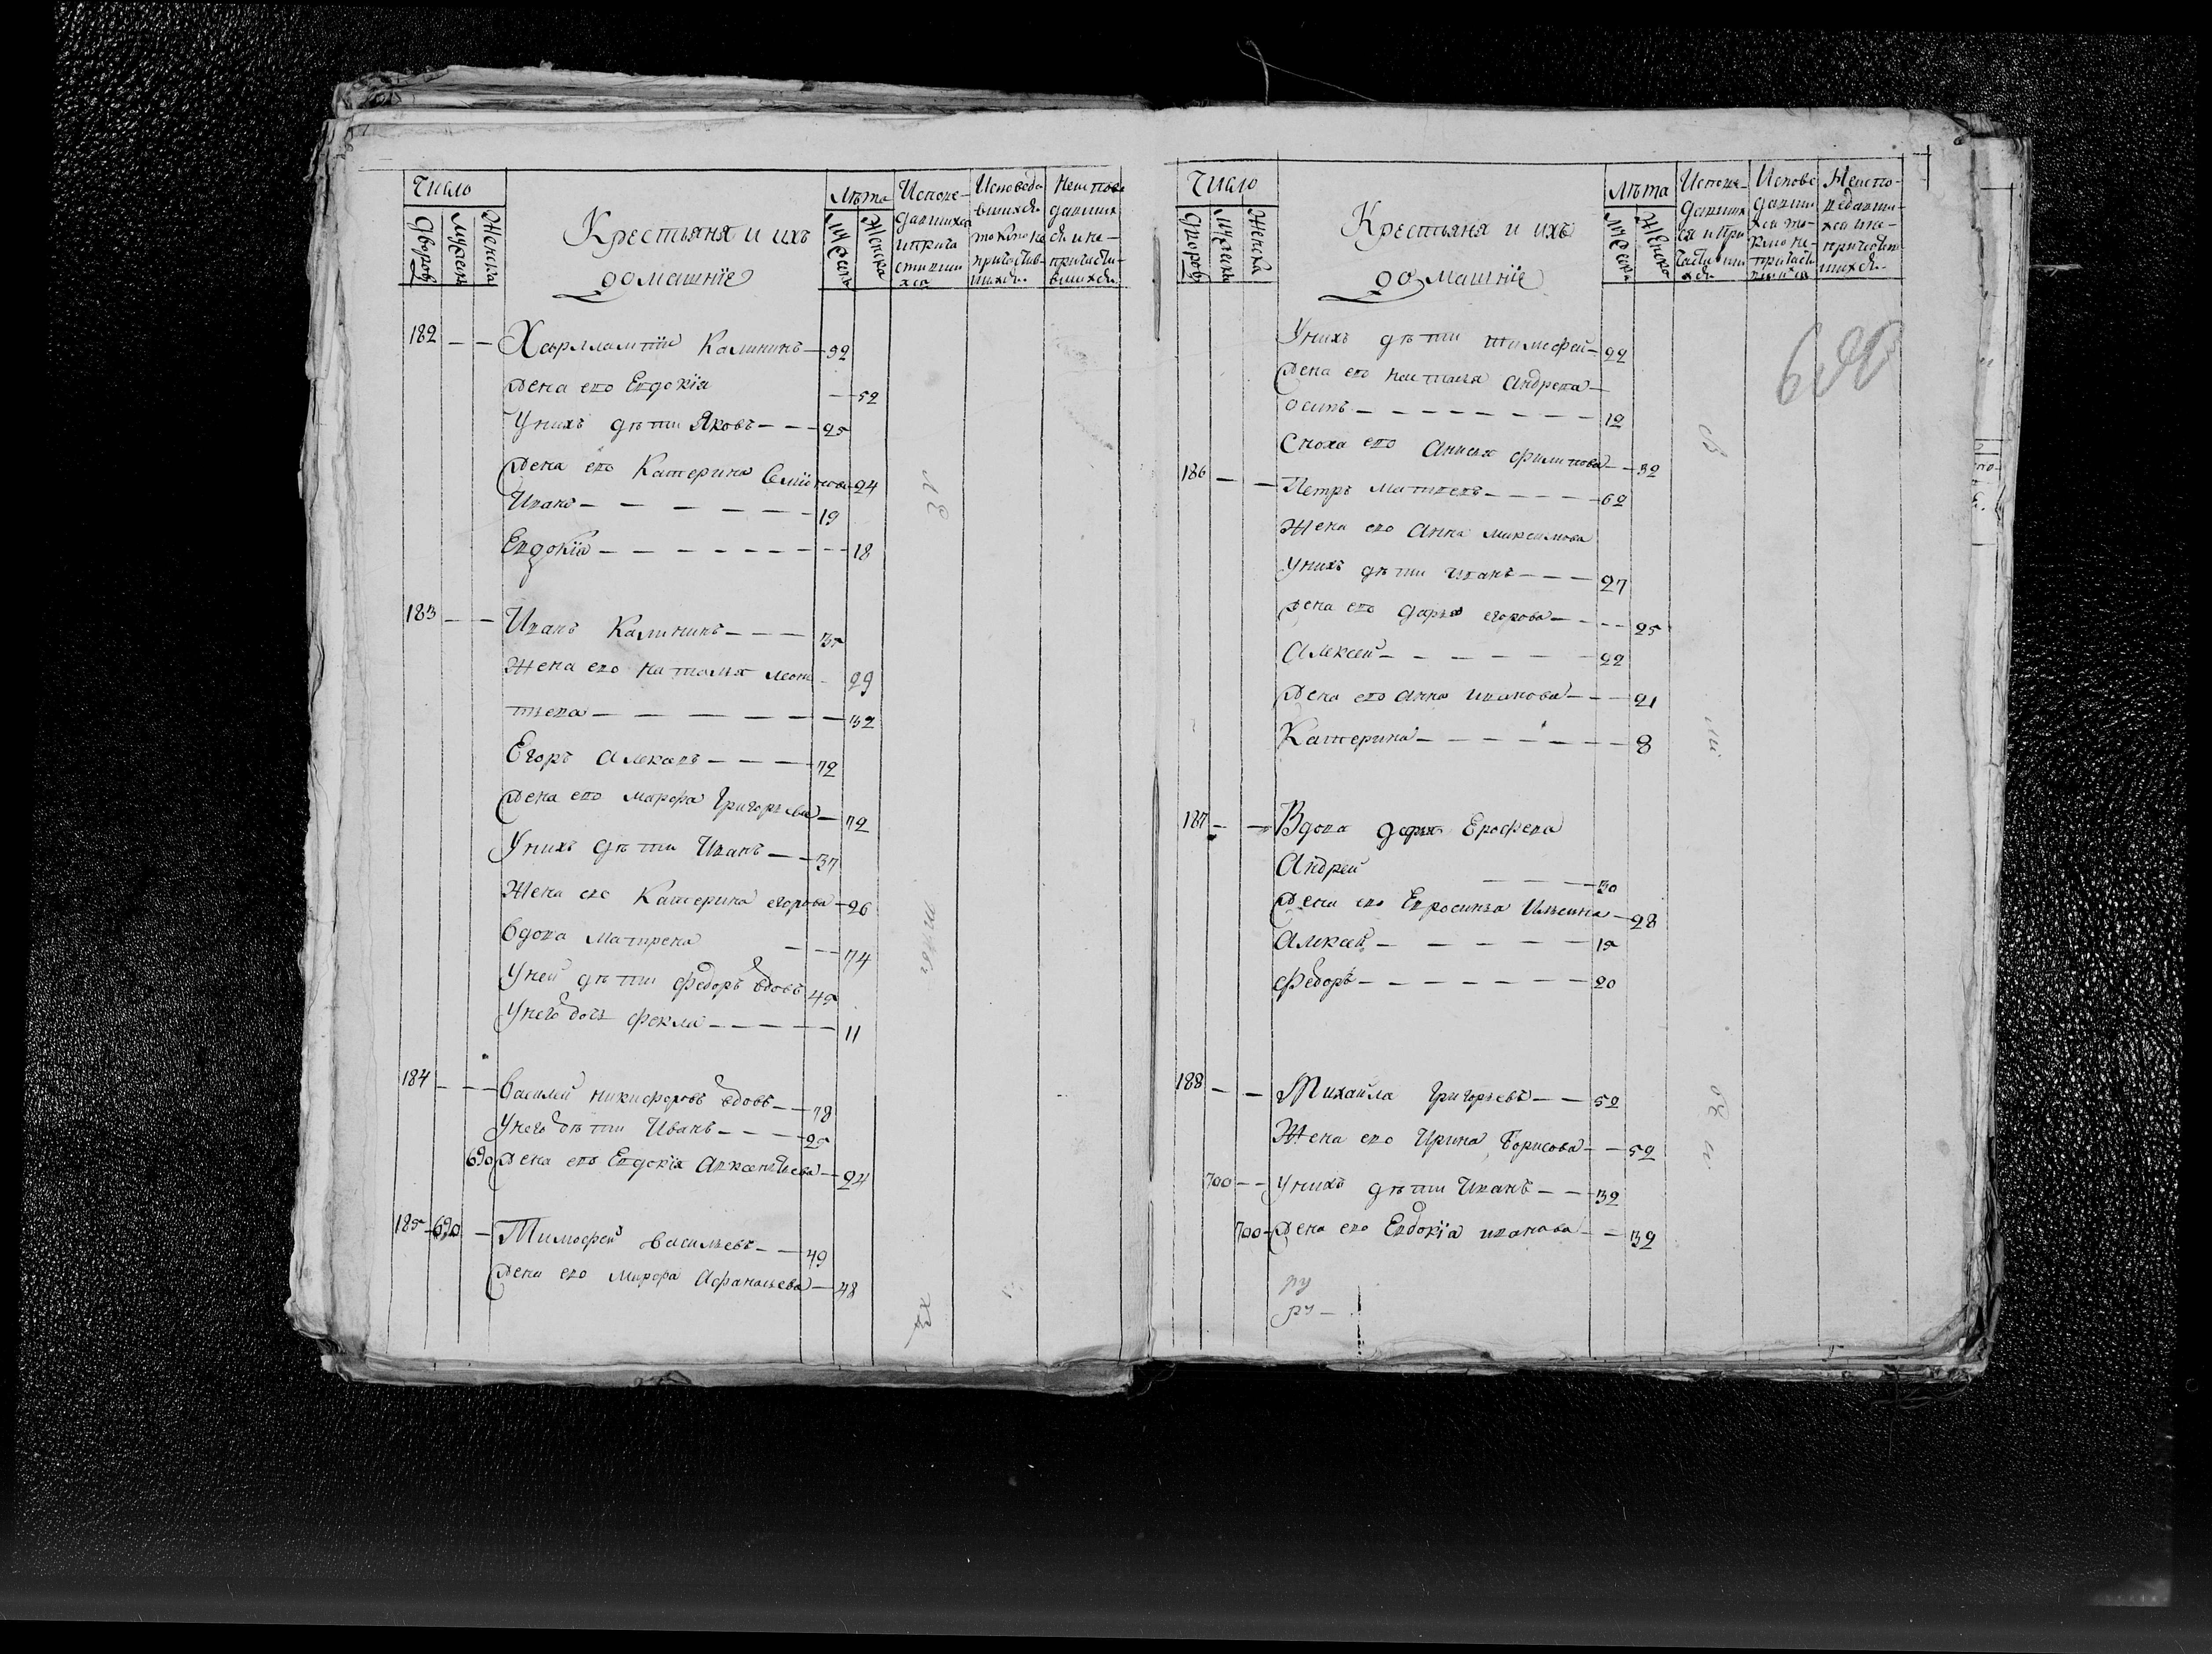 Число
Дворовъ
Мужеска
Женска
Крестьяня и ихъ
домашнїе
Лѣта
Мужеска
Женска
Испове-
давшихся
и прича
стивши
хся
Исповеда
вшихся
токмо не
причастив-
шихся
Неиспове
давших
ся и не-
причасти-
вшихся
182 — — Харлампїи Калининъ — 52
Жена его Евдокїя — — 52
У нихъ дѣти Яковъ — — 25
Жена его Катерина Семїонова 24
Иванъ — — — — — — 19
Евдокїя — — — — — — — 18
183 — — Иванъ Калининъ — — — 35
Жена его Наталья Леон- 29
тьева — — — — — — 32
Егоръ — — — 72
Жена его Марфа Григорьева — 72
У нихъ дѣти Иванъ — — 37
Жена его Катерина Егорова — 26
Вдова Матрена — — — 74
У ней дѣти Федоръ вдовъ 45
У него дочь Фекла — — — — — 11
184 — — Василей Никифоровъ вдовъ — — 78
У него дѣти Иванъ — — — 25
690 Жена его Евдокїя — — 24
185 — 690 — Тимофей Васильевъ — — 49
Жена его Марфа Афанасьева — 48
Число
Дворовъ
Мужеска
Женска
Крестьяня и ихъ
домашнїе
Лѣта
Мужеска
Женска
Испове-
давших
ся и при
части вши
хся
Испове
давши
хся то-
кмо не-
причасти
вшихся
Неиспо-
ведавши-
хся и не-
причастив-
шихся
У нихъ дѣти Тимофей — 22
Жена его Наталья Андреева —
Осипъ — — — — — — — — 12
Сноха его Анисья Филипова — — 32
186 — — Петръ Матвеевъ — — — — — 62
Жена его Анна Максимова
У нихъ дѣти Иванъ — — — 27
Жена его Дарья Егорова — — — — 25
Алексей — — — — — — 22
Жена его Анна Иванова — — — 21
Катерина — — — — — — — 8
187 — — Вдова Дарья Ерофева
Андрей — — — 30
Жена его Евросинья Ильина — 28
Алексей — — — — — — 15
Федоръ — — — — — — — 20
188 — — Михаила Григорьевъ — — 52
Жена его Ирина Борисова — — 52
700 — — У нихъ дѣти Иванъ — — 32
700 — Жена его Евдокїя Иванова — — 32
ру
ру —